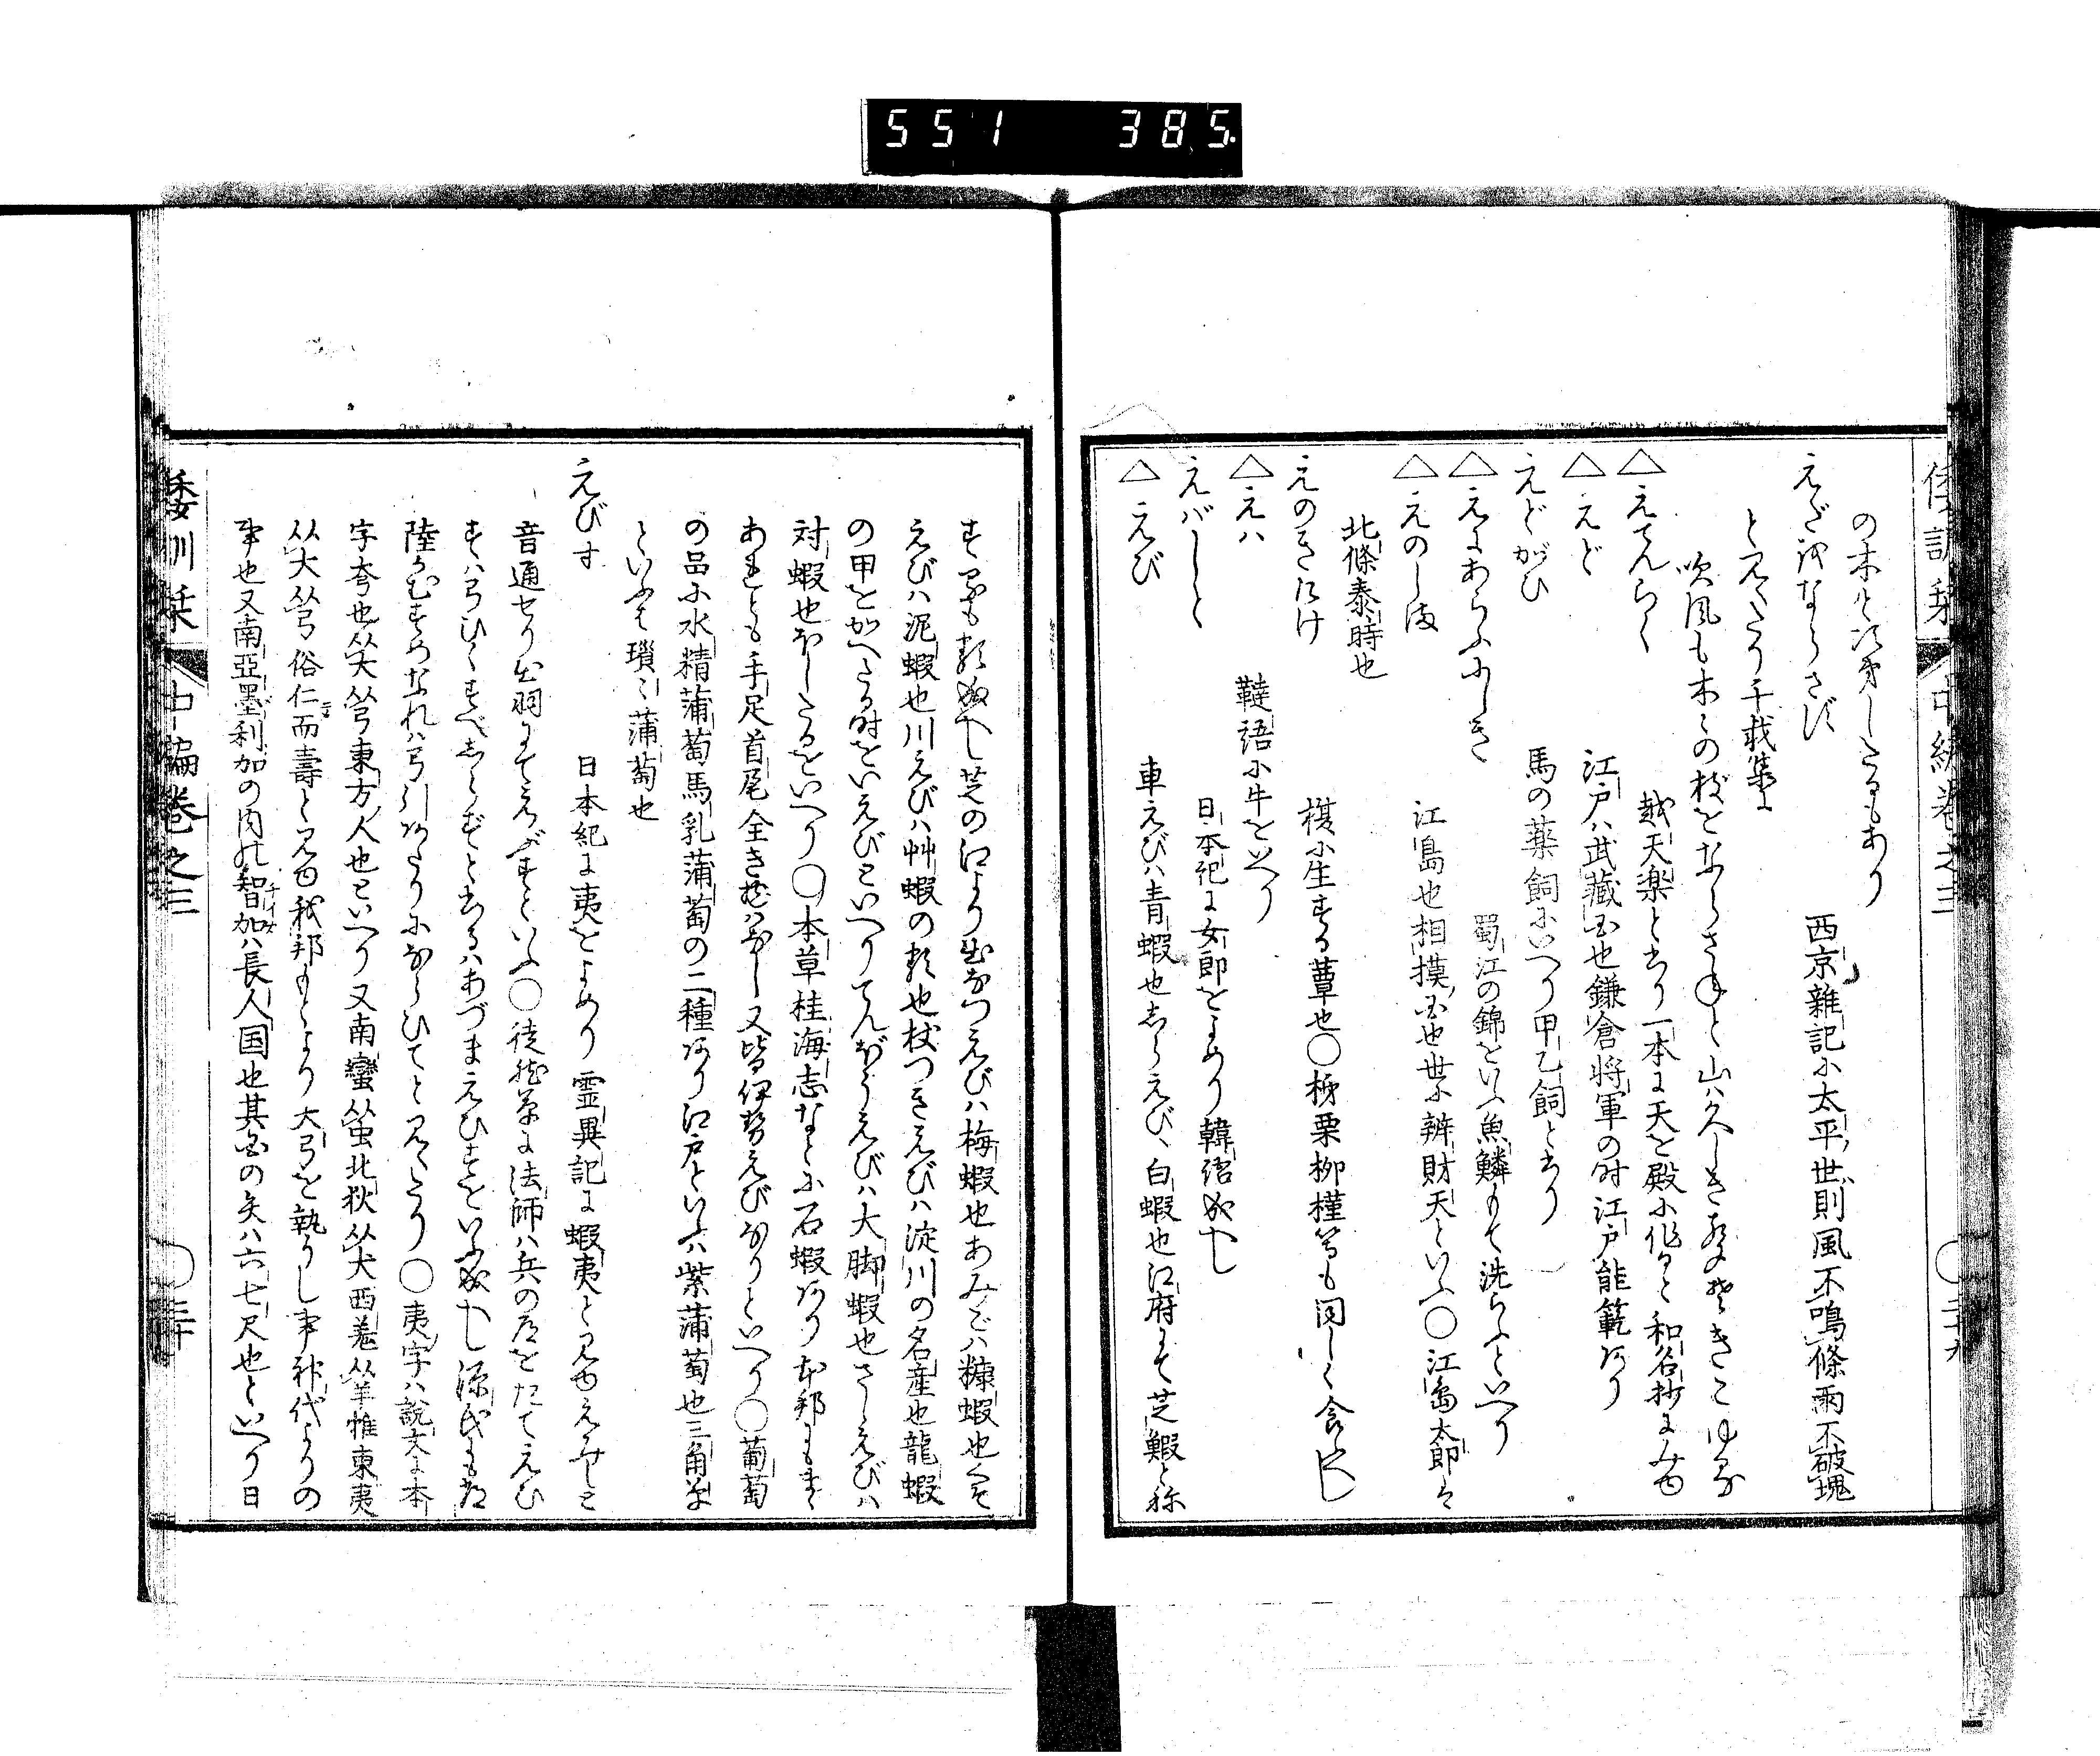 551 385
倭訓栞 中編巻之三 ○二十九
の木と次第したるもあり
えだをならさず 西京雑記小太平世則風不鳴條雨不破塊
と見えたり千載集に
吹風も木々の枝をならさねと山ハ久しき聲そきこゆる
△えてんらく 越天楽とあり一本に天を殿小作ると和名抄にみゆ
△えど 江戸ハ武藏国也鎌倉将軍の时江戸能範あり
えどがひ 馬の薬飼にいへり甲乙飼とあり
△えにあらふにしき 蜀江の錦をいふ魚鱗もて洗ふといへり
△えのしま 江島也相摸国也世に辨財天といふ○江島太郎ハ
北條泰時也
えのきたけ 榎小生する蕈也○栃栗柳槿等も同しく食へし
△えハ 韃語小牛をいへり
えバしと 日本紀に女郎をよめり韓語成へし
△えび 車えびハ青蝦也しらえびハ白蝦也江府にて芝鰕と称
する物も類成へし芝の江より出なつえびハ梅蝦也あみざハ糠蝦也くそ
えびハ泥蝦也川えびハ艸蝦の類也杖つきえびハ淀川の名産也龍蝦
の甲をかへたる时をいえびといへりてんぼうえびハ大脚蝦也さしえびハ
対蝦也ほしたるをいへり○本草桂海志なとに石蝦あり本邦にもまゝ
あれとも手足首尾全き物ハなし又皆伊勢えびなりといへり○葡萄
の品に水精蒲萄馬乳蒲萄の二種あり江戸といふハ紫蒲萄也三角草
といふは瑣々蒲萄也
えびす 日本紀に夷をよめり霊異記に蝦夷と見ゆえみしと
音通せり出羽にてえびすといふ○徒然草に法師ハ兵の道をたてえび
すハ弓ひくすべしらずとあるハあづまえひすをいふ成へし源氏にも常
陸がむすめなれハ弓引ありにならひてと見えたり○夷字ハ説文に本
字夸也从大从弓東方人也といへり又南蠻从虫北狄从犬西羌从羊惟東夷
从大从弓俗仁而壽と見ゆ我邦もとより大弓を執りし事神代よりの
事也又南亜墨利加の内の智加ハ長人国也其国の矢ハ六七尺也といへり日
倭訓栞 中編巻之三 ○三十